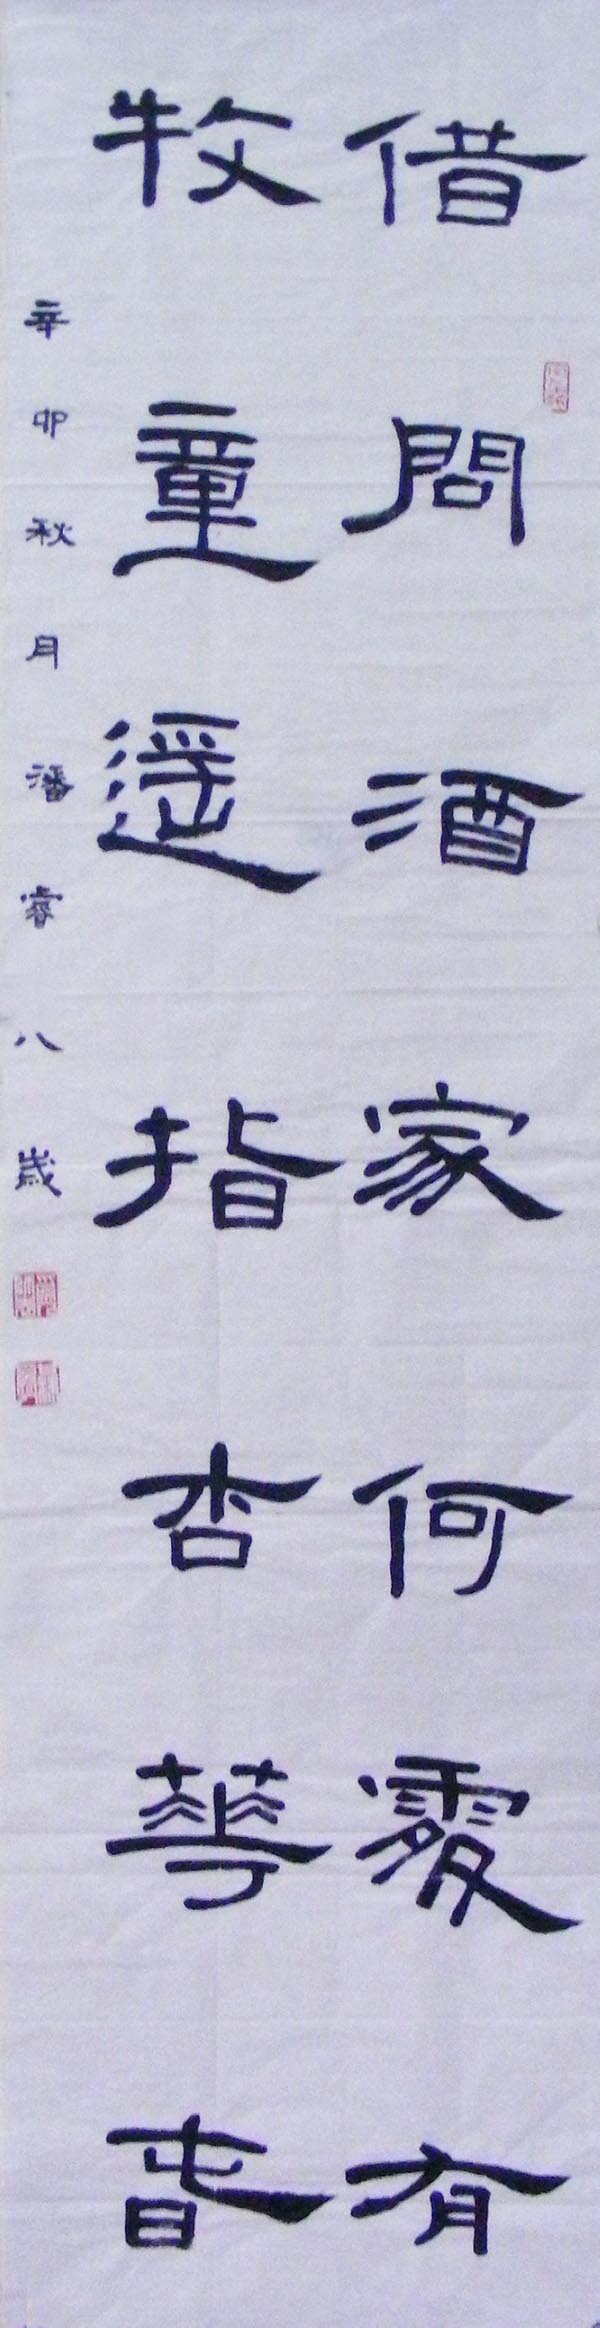 借問酒家何處有
牧童遥指杏華旾
辛卯秋月潘睿八歲